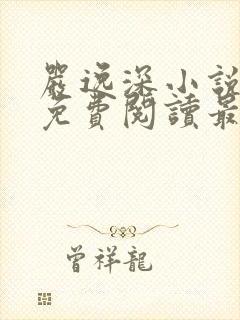 嚴逸深小說
免費閱讀最
曾祥龍